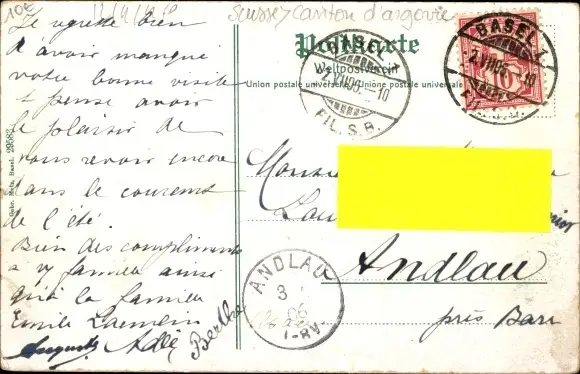 10€
Suisse / canton d'argovie
Je regrette bien
d avoir manqué
votre bonne visite
pense avoir
le plaisir de
vous revoir encore
dans le courent
de l'été.
Bien des compliments
a famille ainsi
qu'à la famille
Emile
Auguste Adèle Berthe
Gebr. Metz, Basel. 29583
Postkarte
Weltpostverein
Union postale universelle. Unione postale universale
BASEL
2.VII.06.-10
FIL. S.B.
BASEL
2.VII.06.-10
FIL. S.B.
10
Monsieur
Andlau
près Barr
ANDLAU
3
06